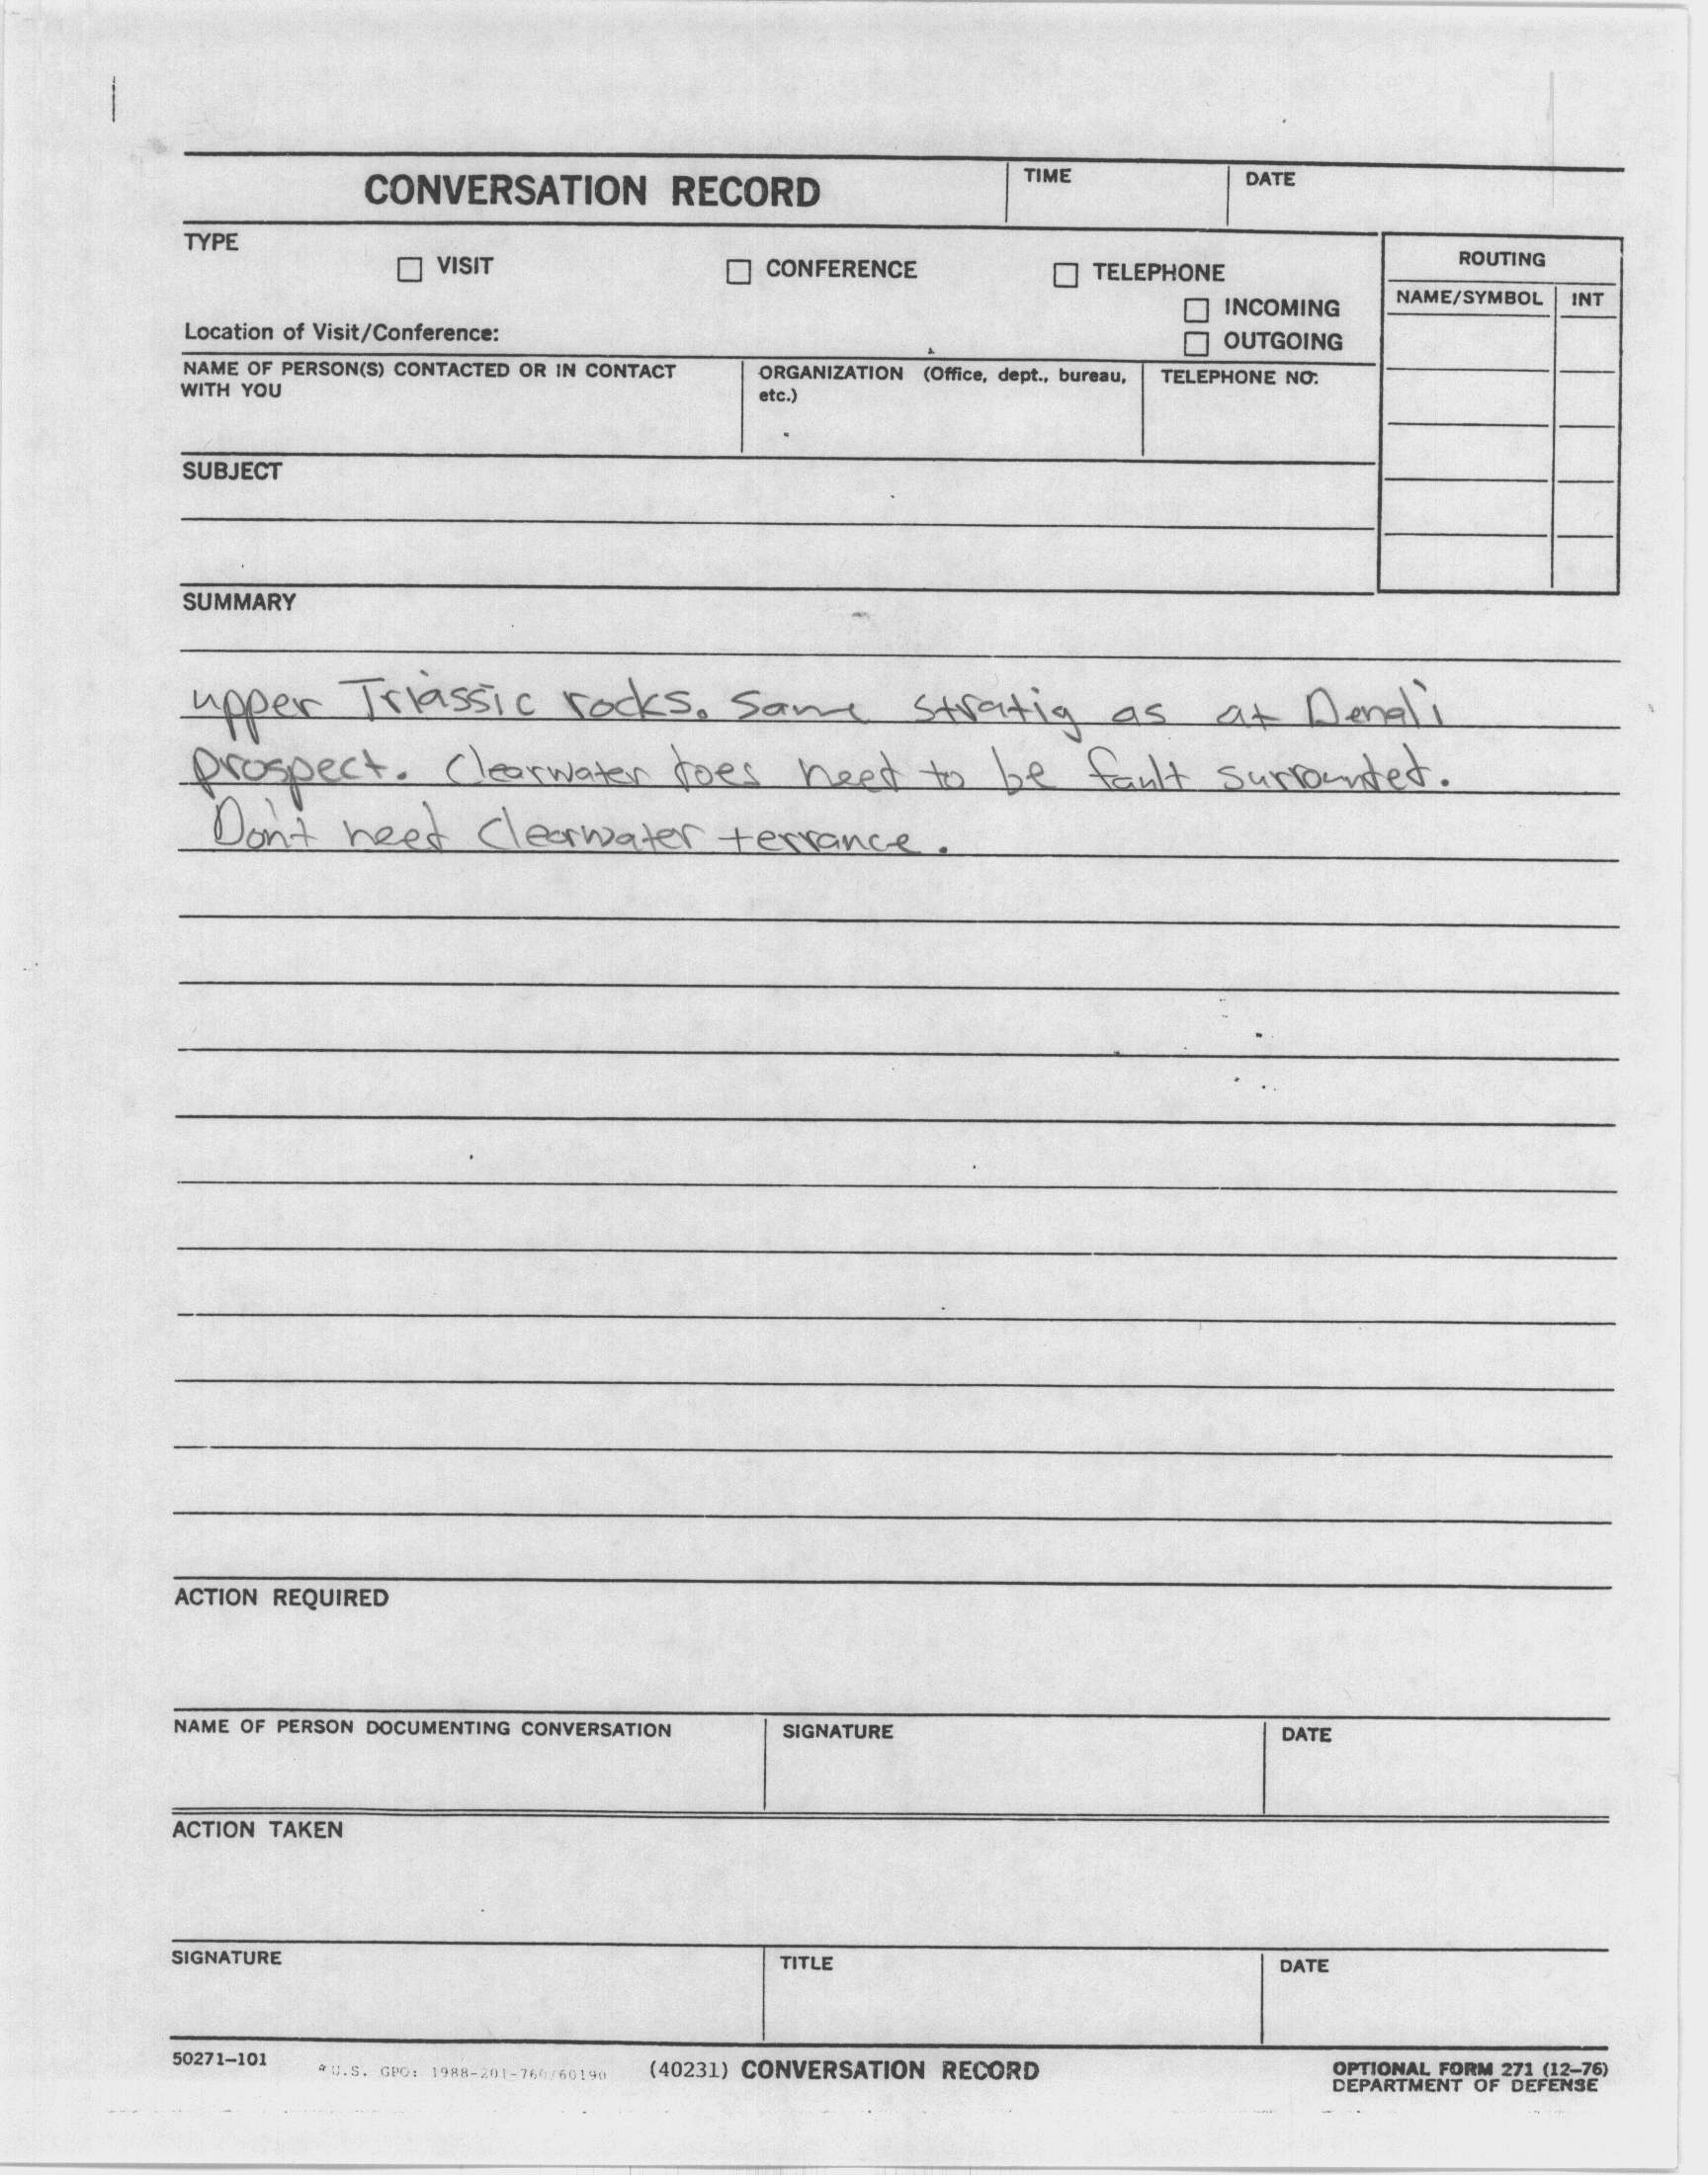 CONVERSATION RECORD
TIME
DATE
TYPE
☐ VISIT ☐ CONFERENCE ☐ TELEPHONE
☐ INCOMING
☐ OUTGOING
Location of Visit/Conference:
ROUTING
NAME/SYMBOL INT
NAME OF PERSON(S) CONTACTED OR IN CONTACT
WITH YOU
ORGANIZATION (Office, dept., bureau,
etc.)
TELEPHONE NO.
SUBJECT
SUMMARY
upper Triassic rocks. Same stratig as at Denali
prospect. Clearwater does need to be fault surrounded.
Don't need Clearwater terrance.
ACTION REQUIRED
NAME OF PERSON DOCUMENTING CONVERSATION
SIGNATURE
DATE
ACTION TAKEN
SIGNATURE
TITLE
DATE
50271-101
*U.S. GPO: 1988-201-760/60190
(40231) CONVERSATION RECORD
OPTIONAL FORM 271 (12-76)
DEPARTMENT OF DEFENSE